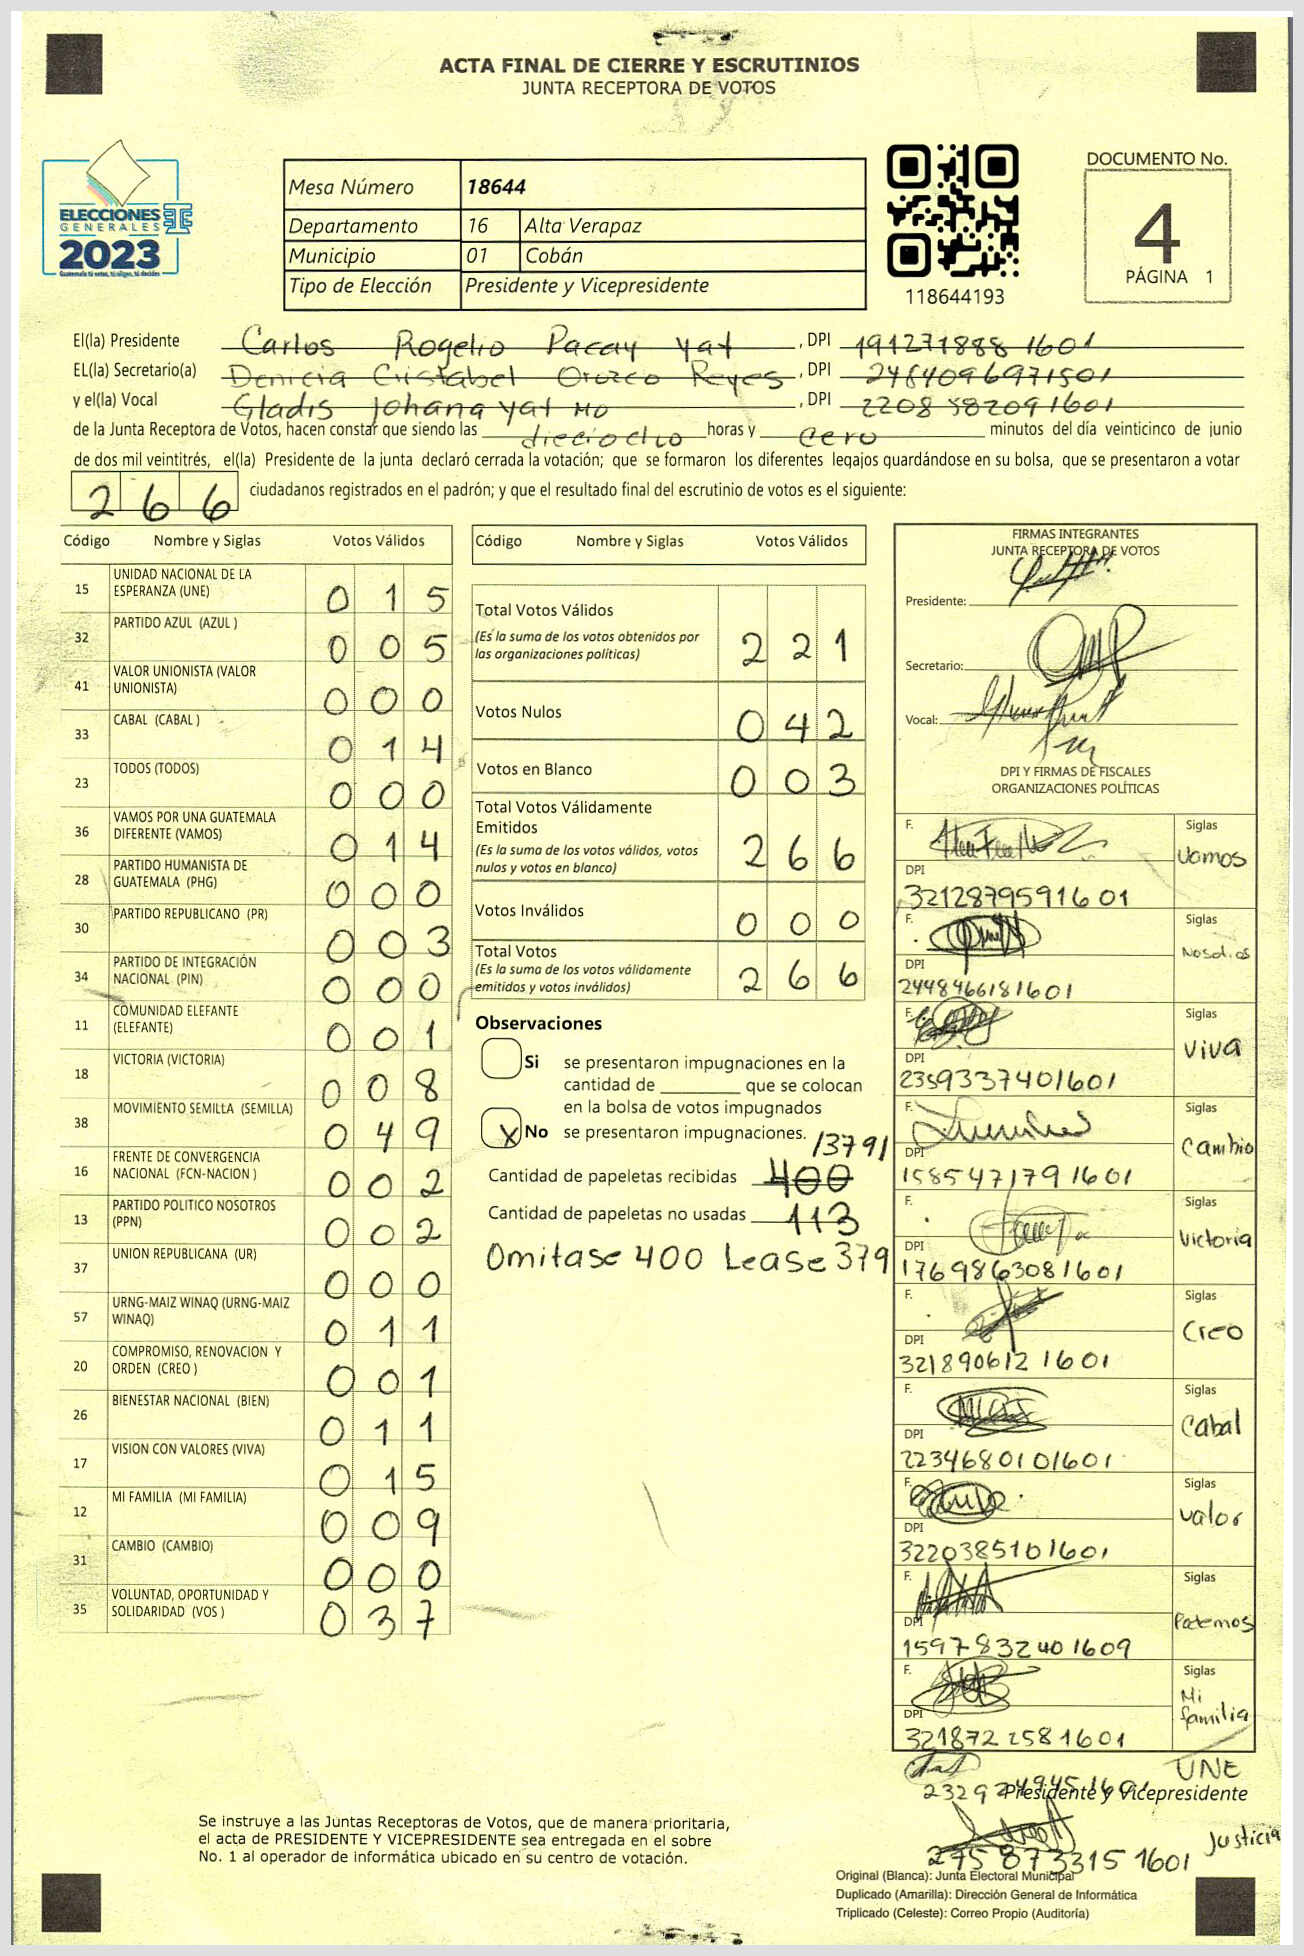 ACTA FINAL DE CIERRE Y ESCRUTINIOS
JUNTA RECEPTORA DE VOTOS
ELECCIONES
GENERALES
2023
Guatemala tú votas, tú eliges, tú decides
Mesa Número 18644
Departamento 16 Alta Verapaz
Municipio 01 Cobán
Tipo de Elección Presidente y Vicepresidente
118644193
DOCUMENTO No.
4
PÁGINA 1
El(la) Presidente Carlos Rogelio Pacay yat, DPI 191271888 1601
EL(la) Secretario(a) Denicia Cristabel Orozco Reyes, DPI 2484096971501
y el(la) Vocal Gladis Johana yat Mo, DPI 2208 582091601
de la Junta Receptora de Votos, hacen constar que siendo las dieciocho horas y cero minutos del día veinticinco de junio
de dos mil veintitrés, el(la) Presidente de la junta declaró cerrada la votación; que se formaron los diferentes legajos guardándose en su bolsa, que se presentaron a votar
266 ciudadanos registrados en el padrón; y que el resultado final del escrutinio de votos es el siguiente:
Código Nombre y Siglas Votos Válidos
15 UNIDAD NACIONAL DE LA ESPERANZA (UNE) 015
32 PARTIDO AZUL (AZUL ) 005
41 VALOR UNIONISTA (VALOR UNIONISTA) 000
33 CABAL (CABAL ) 014
23 TODOS (TODOS) 000
36 VAMOS POR UNA GUATEMALA DIFERENTE (VAMOS) 014
28 PARTIDO HUMANISTA DE GUATEMALA (PHG) 000
30 PARTIDO REPUBLICANO (PR) 003
34 PARTIDO DE INTEGRACIÓN NACIONAL (PIN) 000
11 COMUNIDAD ELEFANTE (ELEFANTE) 001
18 VICTORIA (VICTORIA) 008
38 MOVIMIENTO SEMILLA (SEMILLA) 049
16 FRENTE DE CONVERGENCIA NACIONAL (FCN-NACION ) 002
13 PARTIDO POLITICO NOSOTROS (PPN) 002
37 UNION REPUBLICANA (UR) 000
57 URNG-MAIZ WINAQ (URNG-MAIZ WINAQ) 011
20 COMPROMISO, RENOVACION Y ORDEN (CREO ) 001
26 BIENESTAR NACIONAL (BIEN) 011
17 VISION CON VALORES (VIVA) 015
12 MI FAMILIA (MI FAMILIA) 009
31 CAMBIO (CAMBIO) 000
35 VOLUNTAD, OPORTUNIDAD Y SOLIDARIDAD (VOS ) 037
Código Nombre y Siglas Votos Válidos
Total Votos Válidos 221
(Es la suma de los votos obtenidos por
las organizaciones políticas)
Votos Nulos 042
Votos en Blanco 003
Total Votos Válidamente
Emitidos 266
(Es la suma de los votos válidos, votos
nulos y votos en blanco)
Votos Inválidos 000
Total Votos 266
(Es la suma de los votos válidamente
emitidos y votos inválidos)
Observaciones
Si se presentaron impugnaciones en la
cantidad de ________ que se colocan
en la bolsa de votos impugnados
X No se presentaron impugnaciones.
/379/
Cantidad de papeletas recibidas 400
Cantidad de papeletas no usadas 113
Omitase 400 Lease 379
FIRMAS INTEGRANTES
JUNTA RECEPTORA DE VOTOS
Presidente:
Secretario:
Vocal:
DPI Y FIRMAS DE FISCALES
ORGANIZACIONES POLÍTICAS
F. Siglas Vamos
DPI 3212879591601
F. Siglas Nosotros
DPI 2448466181601
F. Siglas Viva
DPI 2359337401601
F. Siglas Cambio
DPI 1585471791601
F. Siglas Victoria
DPI 1769863081601
F. Siglas Creo
DPI 321890612 1601
F. Siglas Cabal
DPI 2234680101601
F. Siglas Valor
DPI 3220385101601
F. Siglas Podemos
DPI 1597832401609
F. Siglas Mi familia
DPI 321872 2581601
UNE
Presidente y Vicepresidente
Justicia
275 873315 1601
Se instruye a las Juntas Receptoras de Votos, que de manera prioritaria,
el acta de PRESIDENTE Y VICEPRESIDENTE sea entregada en el sobre
No. 1 al operador de informática ubicado en su centro de votación.
Original (Blanca): Junta Electoral Municipal
Duplicado (Amarilla): Dirección General de Informática
Triplicado (Celeste): Correo Propio (Auditoría)